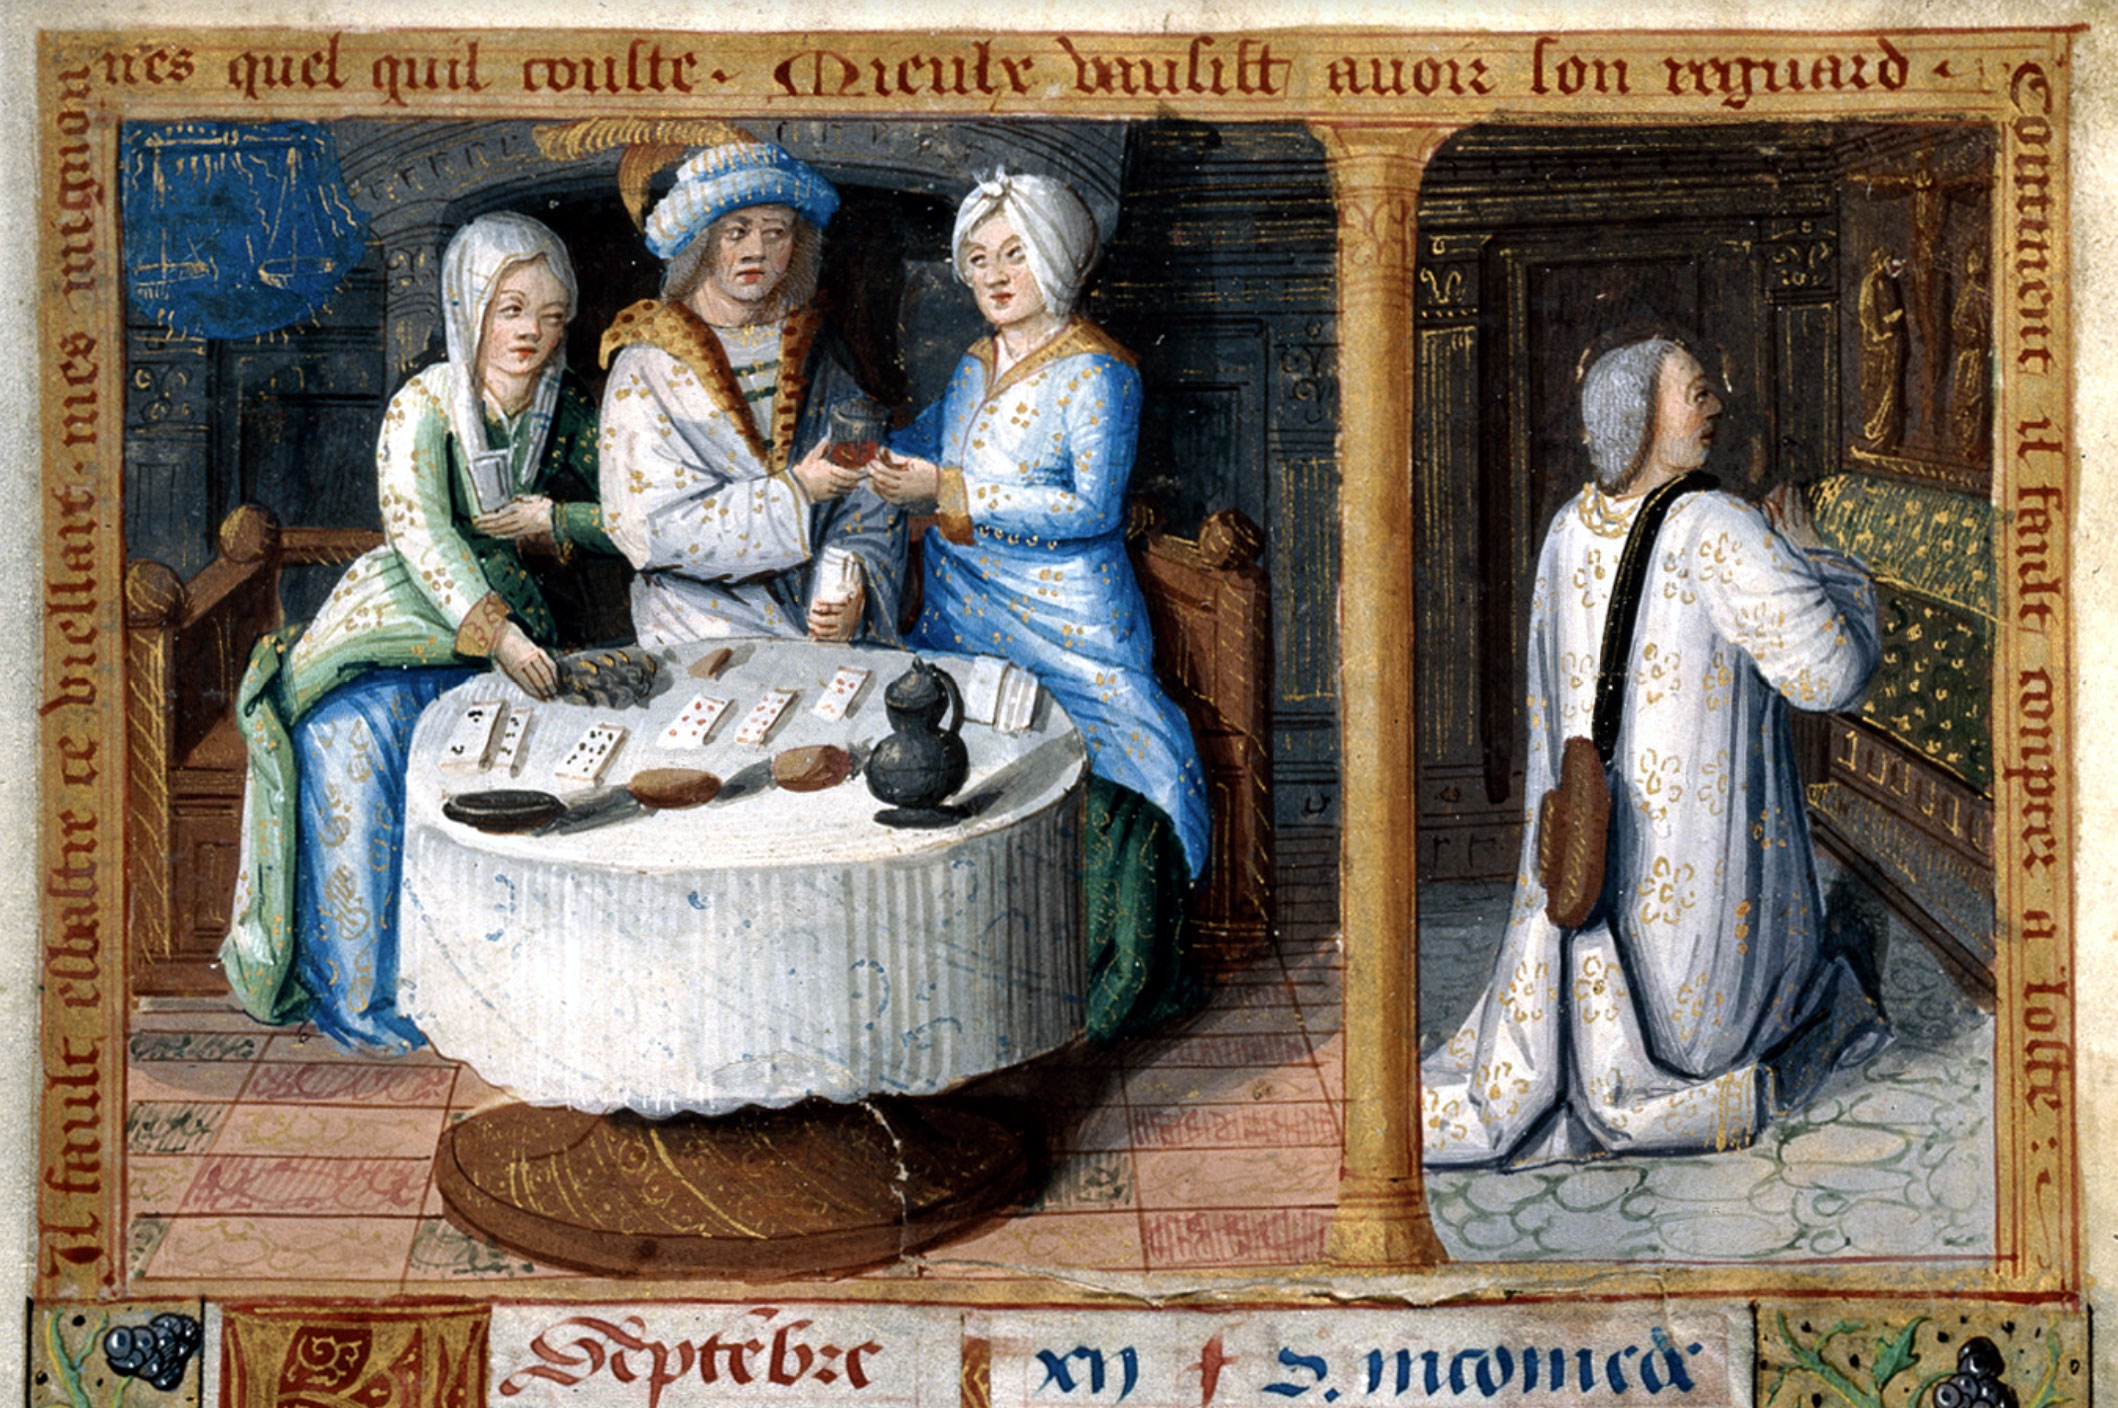 Il fault esbastre ce viellart · mes mignon
nes quel quil couste · Mieulx vausist auoir son reguard ·
Comment il fault conpter a loste :
Septẽbre
xij † S. nicomede